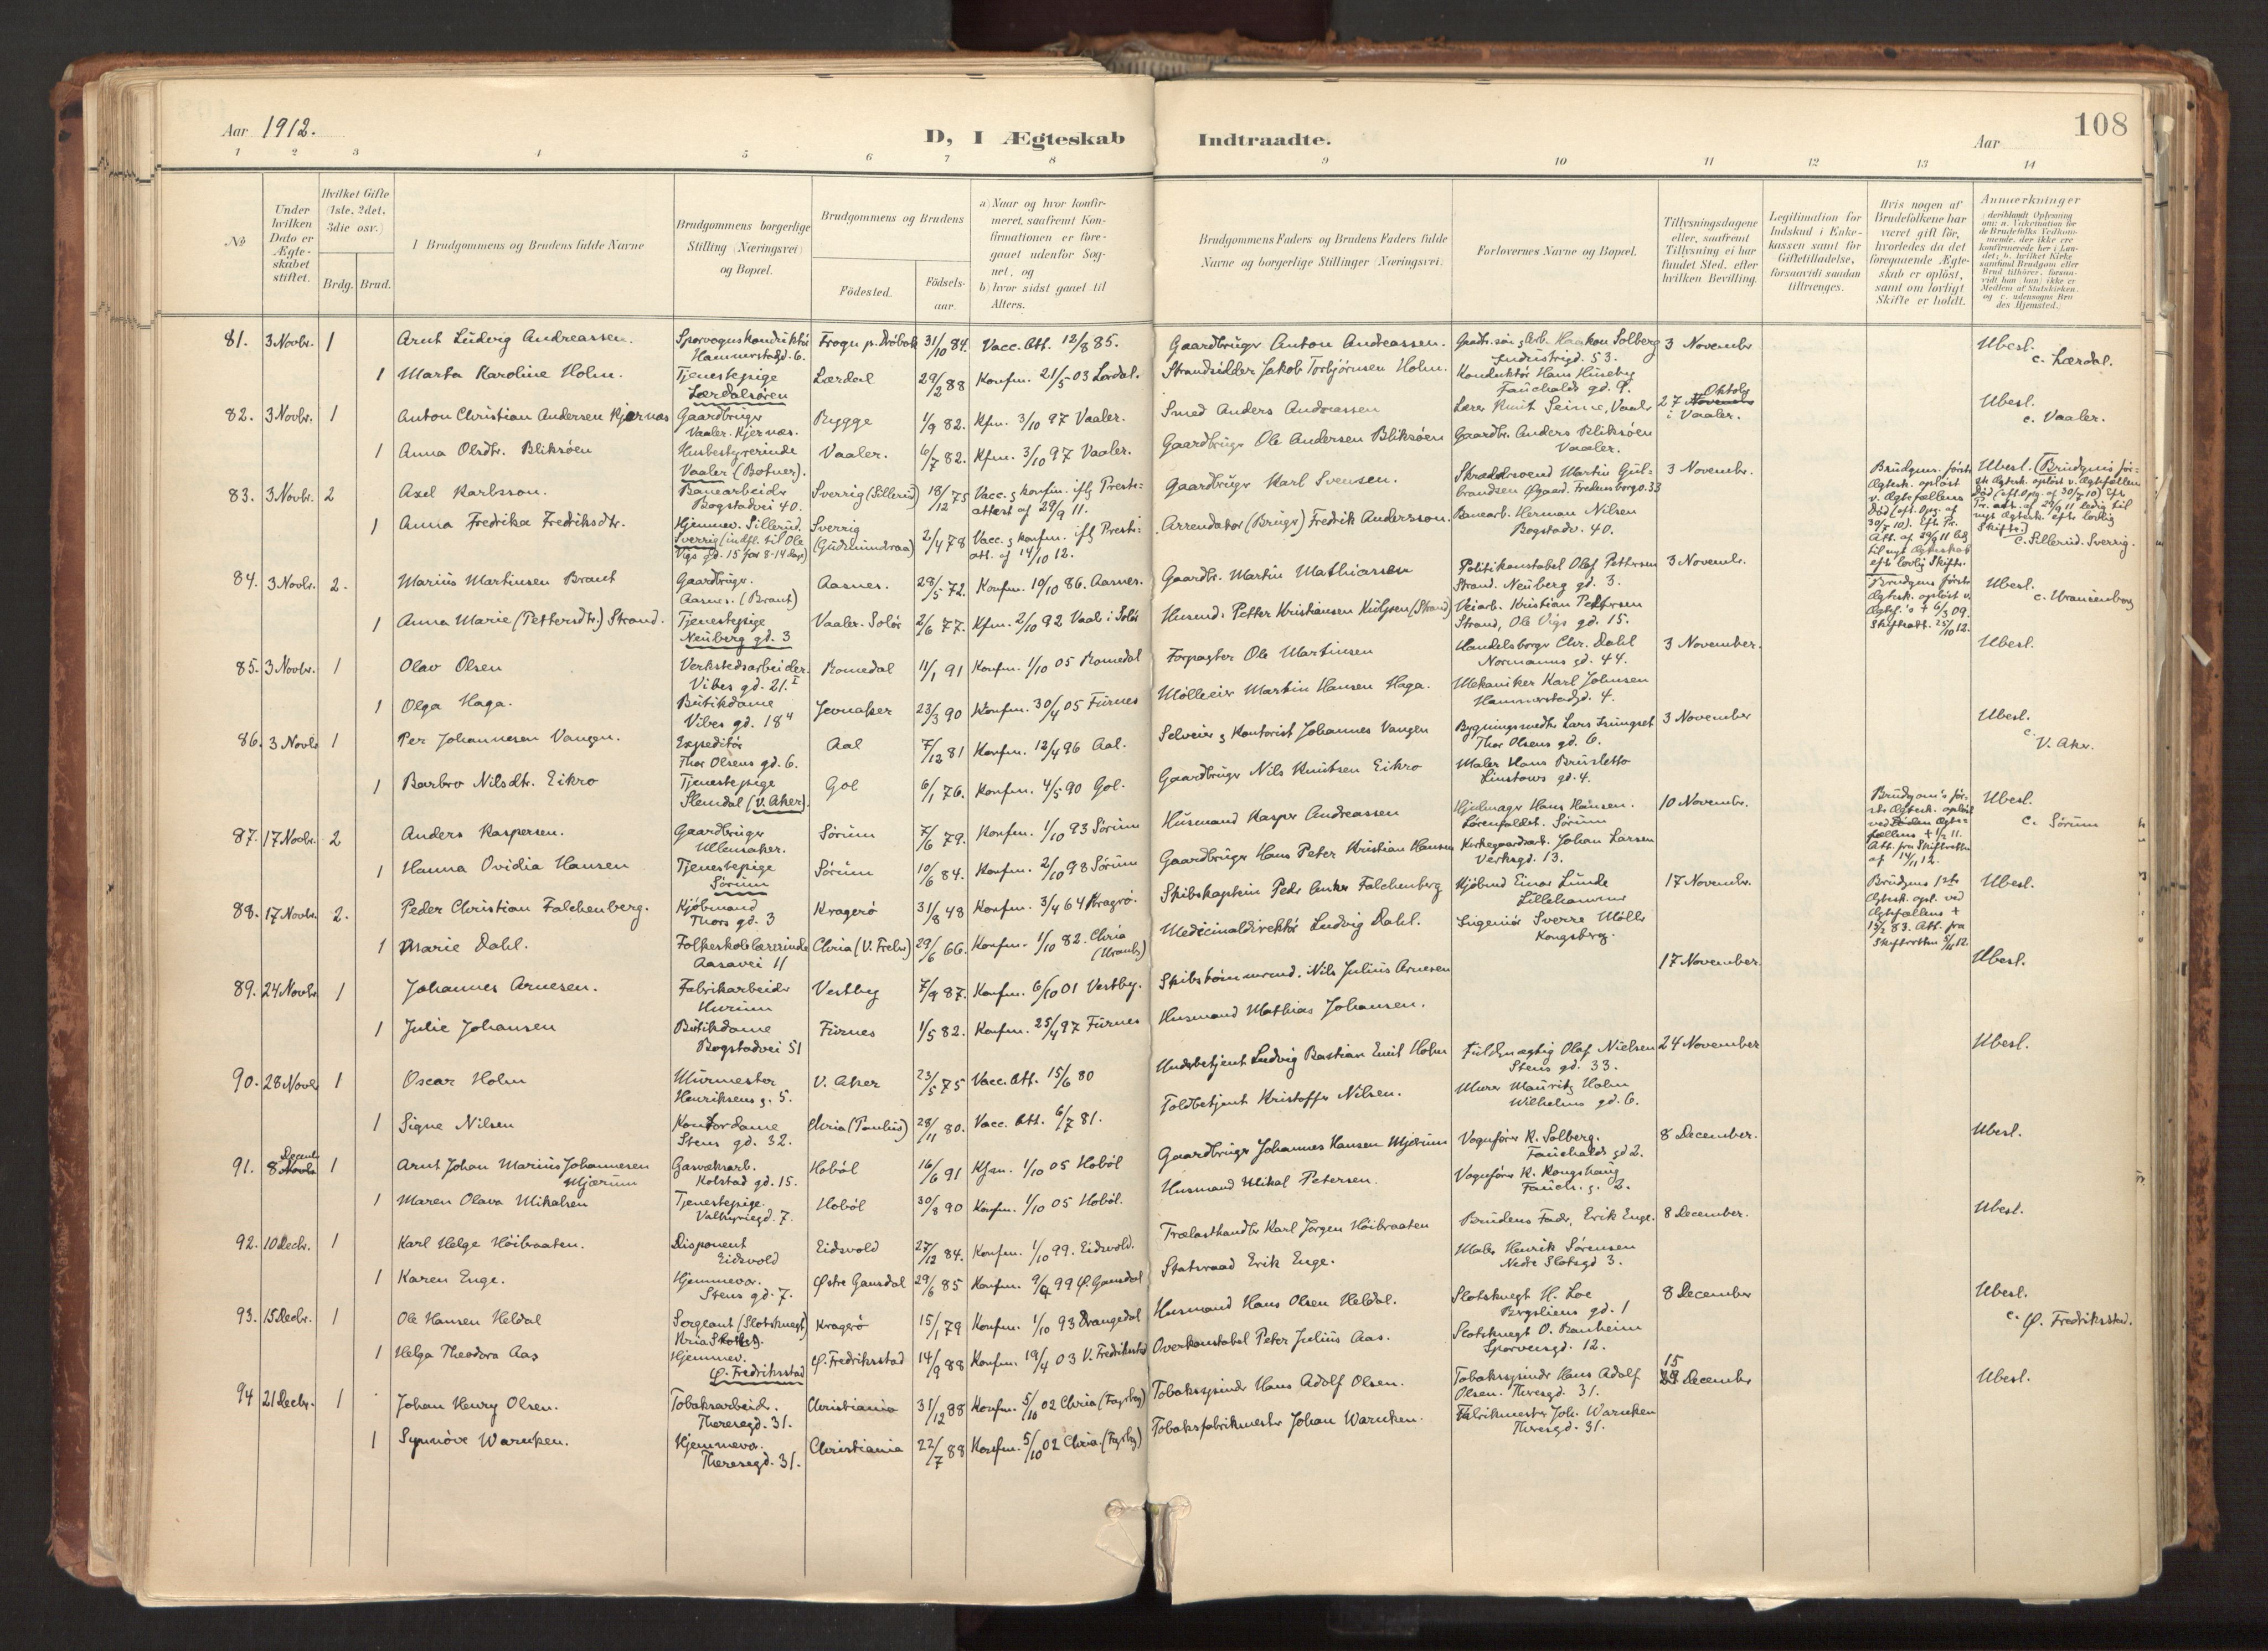 Aar 1912.
D, I Ægteskab
Indtraadte.
Aar
108
1 2 3 4 5 6 7 8 9 10 11 12 13 14
№
Under hvilken Dato er Ægteskabet stiftet.
Hvilket Gifte (1ste, 2det, 3die osv.)
Brdg. Brud.
1 Brudgommens og Brudens fulde Navne
Brudgommens borgerlige Stilling (Næringsvei) og Bopæl.
Brudgommens og Brudens
Födested.
Födselsaar.
a) Naar og hvor konfirmeret, saafremt Konfirmationen er foregaaet udenfor Sognet, og
b) hvor sidst gaaet til Alters.
Brudgommens Faders og Brudens Faders fulde Navne og borgerlige Stillinger (Næringsvei).
Forlovernes Navne og Bopæl.
Tillysningsdagene eller, saafremt Tillysning ei har fundet Sted, efter hvilken Bevilling.
Legitimation for Indskud i Enkekassen samt for Giftetilladelse, forsaavidt saadan tiltrænges.
Hvis nogen af Brudefolkene har været gift för, hvorledes da det foregaaende Ægteskab er oplöst, samt om lovligt Skifte er holdt.
Anmærkninger
(deriblandt Oplysning om: a. Vakcination for de Brudefolks Vedkommende, der ikke ere konfirmerede her i Landet; b. hvilket Kirkesamfund Brudgom eller Brud tilhörer, forsaavidt han (hun) ikke er Medlem af Statskirken, og c. udensogns Brudes Hjemsted.)
81. 3 Novbr. 1 Arnt Ludvig Andreassen. Sporvognskonduktör Hammerstadgd. 6. Frogn p. Dröbak 31/10 84. Vacc. Att. 12/8 85. Gaardbruger Anton Andreassen. Gaardbr. sön g Arb. Haakon Solberg Industrigd. 53. 3 November Ubesl.
1 Marta Karoline Holm. Tjenestepige Lærdalsören Lærdal 29/2 88 Konfm. 21/5 03 Lærdal. Strandsidder Jakob Torbjörnsen Holm. Konduktör Hans Huseby Fauchalds gd. 9. c. Lærdal.
82. 3 Novbr. 1 Anton Christian Andersen Kjærnæs Gaardbruger Vaaler. Kjernæs. Rygge 1/9 82. Kfm. 3/10 97 Vaaler. Smed Anders Andreassen Lærer Knut Seime, Vaaler 27 Oktober i Vaaler. Ubesl. c. Vaaler.
1 Anna Olsdtr. Bliksöen Husbestyrerinde Vaaler (Botner). Vaaler. 6/7 82. Kfm. 3/10 97 Vaaler. Gaardbruger Ole Andersen Bliksöen Gaardbr. Anders Bliksöen Vaaler.
83. 3 Novbr. 2 Axel Karlsson. Banearbeider Bogstadvei 40. Sverrig (Sillerud) 18/12 75 Vacc. g konfm. iflg Presteattest af 29/9 11. Gaardbruger Karl Svensen. Skræddersvend Martin Gulbrandsen Ögaard. Fredensborgv. 33 3 Novembr. Brudgoms förste Ægtesk. oplöst v. Ægtefællens Död (eft. Opg. af 30/7 10). Eft. Pr. Att. af 29/9 11 ledig til nyt Ægteskab efter lovlig Skifte. Ubesl. (Brudgoms förste Ægtesk. oplöst v. Ægtefællens Död (eft. Opg. af 30/7 10) Eft. Pr. att. af 29/9 11 ledig til nyt Ægtesk. efter lovlig Skifte.)
1 Anna Fredrika Fredriksdtr. Hjemmev. Sillerud. Sverrig (indfl. til Ole Vigs gd. 15 for 8-14 dage) Sverrig (Gudmundraa) 2/4 78 Vacc. g konfm. iflg Presteatt. af 14/10 12. Arrendator (Bruger) Fredrik Andersson. Banearb. Herman Nilsen Bogstadv. 40. c. Sillerud. Sverrig.
84. 3 Novbr. 2. Marius Martinsen Braut Gaardbruger. Aasnes. (Braut) Aasnes. 28/5 72. Konfm. 10/10 86. Aasnes. Gaardbr. Martin Mathiassen Politikonstabel Olaf Pettersen Strand. Neuberg gd. 3. 3 Novembr. Brudgoms förste Ægtesk. oplöst v. Ægtef.'s + 6/3 09. Skifteatt. 25/10 12. Ubesl. c. Uranienborg
1 Anna Marie (Pettersdtr.) Strand. Tjenestepige Neuberg gd. 3 Vaaler. Solör 2/6 77. Kfm. 2/10 92 Vaaler i Solör Husmd. Petter Kristiansen (Strand) Veiarb. Kristian Pettersen Strand, Ole Vigs gd. 15.
85. 3 Novbr. 1 Olav Olsen Verkstedsarbeider. Vibes gd. 21. I Romedal 11/1 91 Konfm. 1/10 05 Romedal Forpagter Ole Martinsen Handelsborger Chr. Dahl Normanns gd. 44. 3 November. Ubesl.
1 Olga Haga. Butikdame Vibes gd. 18 4 Jevnaker 23/3 90 Konfm. 30/4 05 Furnes Mölleeier Martin Hansen Haga. Mekaniker Karl Johnsen Hammerstadgd. 4.
86. 3 Novbr 1 Per Johannesen Vangen. Expeditör Thor Olsens gd. 6. Aal 7/12 81 Konfm. 12/4 96 Aal. Selveier g Kontorist Johannes Vangen Bygningsmedhr. Lars Thor Olsens gd. 6. 3 November Ubesl. c. V. Aker.
1 Barbro Nilsdtr. Eikro Tjenestepige Slemdal (V. Aker). Gol 6/1 76. Konfm. 4/5 90 Gol. Gaardbruger Nils Knutsen Eikro Maler Hans Brusletto Linstows gd. 4.
87. 17 Novbr. 2 Anders Kaspersen. Gaardbruger Ullensaker. Sörum 7/6 79. Konfm. 1/10 93 Sörum Husmand Kasper Andreassen Hjulmager Hans Hansen. Lörenfaldet. Sörum 10 Novembr. Brudgom's förste Ægtesk. oplöst ved Ægtefællens + 1/2 11. Att. fra Skifteretten af 14/11 12. Ubesl. c. Sörum
1 Hanna Ovidia Hansen Tjenestepige Sörum Sörum 10/6 84. Konfm. 2/10 98 Sörum Gaardbruger Hans Peter Kristian Hansen Kirkegaardsarb. Johan Larsen Verksgd. 13.
88. 17 Novbr. 2. Peder Christian Falchenberg. Kjöbmand Thors gd. 3 Kragerö 31/8 48 Konfm. 3/4 64 Kragerö. Skibskaptein Peder Anker Falchenberg Kjöbmd Einar Lunde Lillehammer 17 Novembr. Brudgoms 1ste Ægtesk. opl. ved Ægtefællens + 15/2 83. Att. fra Skifteretten 5/11 12. Ubesl.
1 Marie Dahl. Folkeskolelærerinde Aasavei 11 Chria (V. Frels.) 29/6 66. Konfm. 1/10 82. Chria (Uranb.) Medicinaldirektör Ludvig Dahl. Ingeniör Sverre Möller Kongsberg.
89. 24 Novbr. 1 Johannes Arnesen. Fabrikarbeider Hurum Vestby 7/9 87. Konfm. 6/10 01 Vestby. Skibstömmermd. Nils Julius Arnesen 17 November. Ubesl.
1 Julie Johansen Butikdame Bogstadvei 51 Furnes 1/5 82. Konfm. 25/4 97 Furnes Husmand Mathias Johansen.
90. 28 Novbr 1 Oscar Holm Murmester Henriksens g. 5. V. Aker 23/5 75 Vacc. Att. 15/6 80 Underbetjent Ludvig Bastian Emil Holm Fuldmægtig Olaf Nielsen Stens gd. 33. 24 November Ubesl.
1 Signe Nilsen Kontordame Stens gd. 32. Chria (Paulus) 28/11 80. Vacc. Att. 6/7 81. Toldbetjent Kristoffer Nilsen. Murer Mauritz Holm Wilhelms gd. 6.
91. 8 Decemb. Novbr 1 Arnt Johan Marius Johannesen Mjærum Gasverksarb. Kolstad gd. 15. Hoböl 16/6 91 Kfm. 1/10 05 Hoböl Gaardbruger Johannes Hansen Mjærum Vognförer K. Solberg. Fauchalds gd 2. 8 December. Ubesl.
1 Maren Olava Mikalsen Tjenestepige. Valkyriegd. 7. Hoböl 30/8 90 Konfm. 1/10 05 Hoböl. Husmand Mikal Petersen. Vognförer K. Kongshaug Fauch. g. 2.
92. 10 Decbr. 1 Karl Helge Höibraaten. Disponent Eidsvold Eidsvold 27/12 84. Konfm. 1/10 99. Eidsvold. Trælasthandler Karl Jörgen Höibraaten Brudens Fader, Erik Enge. 8 December. Ubesl.
1 Karen Enge. Hjemmevr. Stens gd. 7. Östre Gausdal 29/6 85 Konfm. 9/4 99 Ö. Gausdal Statsraad Erik Enge. Maler Henrik Sörensen Nedre Slotsgd 3.
93. 15 Decbr. 1 Ole Hansen Heldal Sergeant (Slotsknegt) Kria Slottet. Kragerö 15/1 79 Konfm. 1/10 93 Drangedal Husmand Hans Olsen Heldal. Slotsknegt H. Loe Bergsliens gd. 1 8 December Ubesl. c. Ö. Fredriksstad.
1 Helga Theodora Aas Hjemmev. Ö. Fredriksstad Ö. Fredriksstad 14/9 88 Konfm. 19/4 03 V. Fredrikstad Overkonstabel Peter Julius Aas. Slotsknegt O. Ranheim Sporveisgd. 12.
94 21 Decbr. 1 Johan Henry Olsen. Tobaksarbeid. Theresegd. 31. Christiania 31/12 88 Konfm. 5/10 02 Chria (Fagerbg) Tobaksspinder Hans Adolf Olsen. Tobaksspinder Hans Adolf Olsen. Theresgd. 31. 15 December Ubesl.
1 Synnöve Warnken. Hjemmevr. Theresegd. 31. Christiania 22/7 88 Konfm. 5/10 02 Chria. (Fagerbg) Tobaksfabrikmester Johan Warnken. Fabrikmester Joh. Warnken Theresgd. 31.